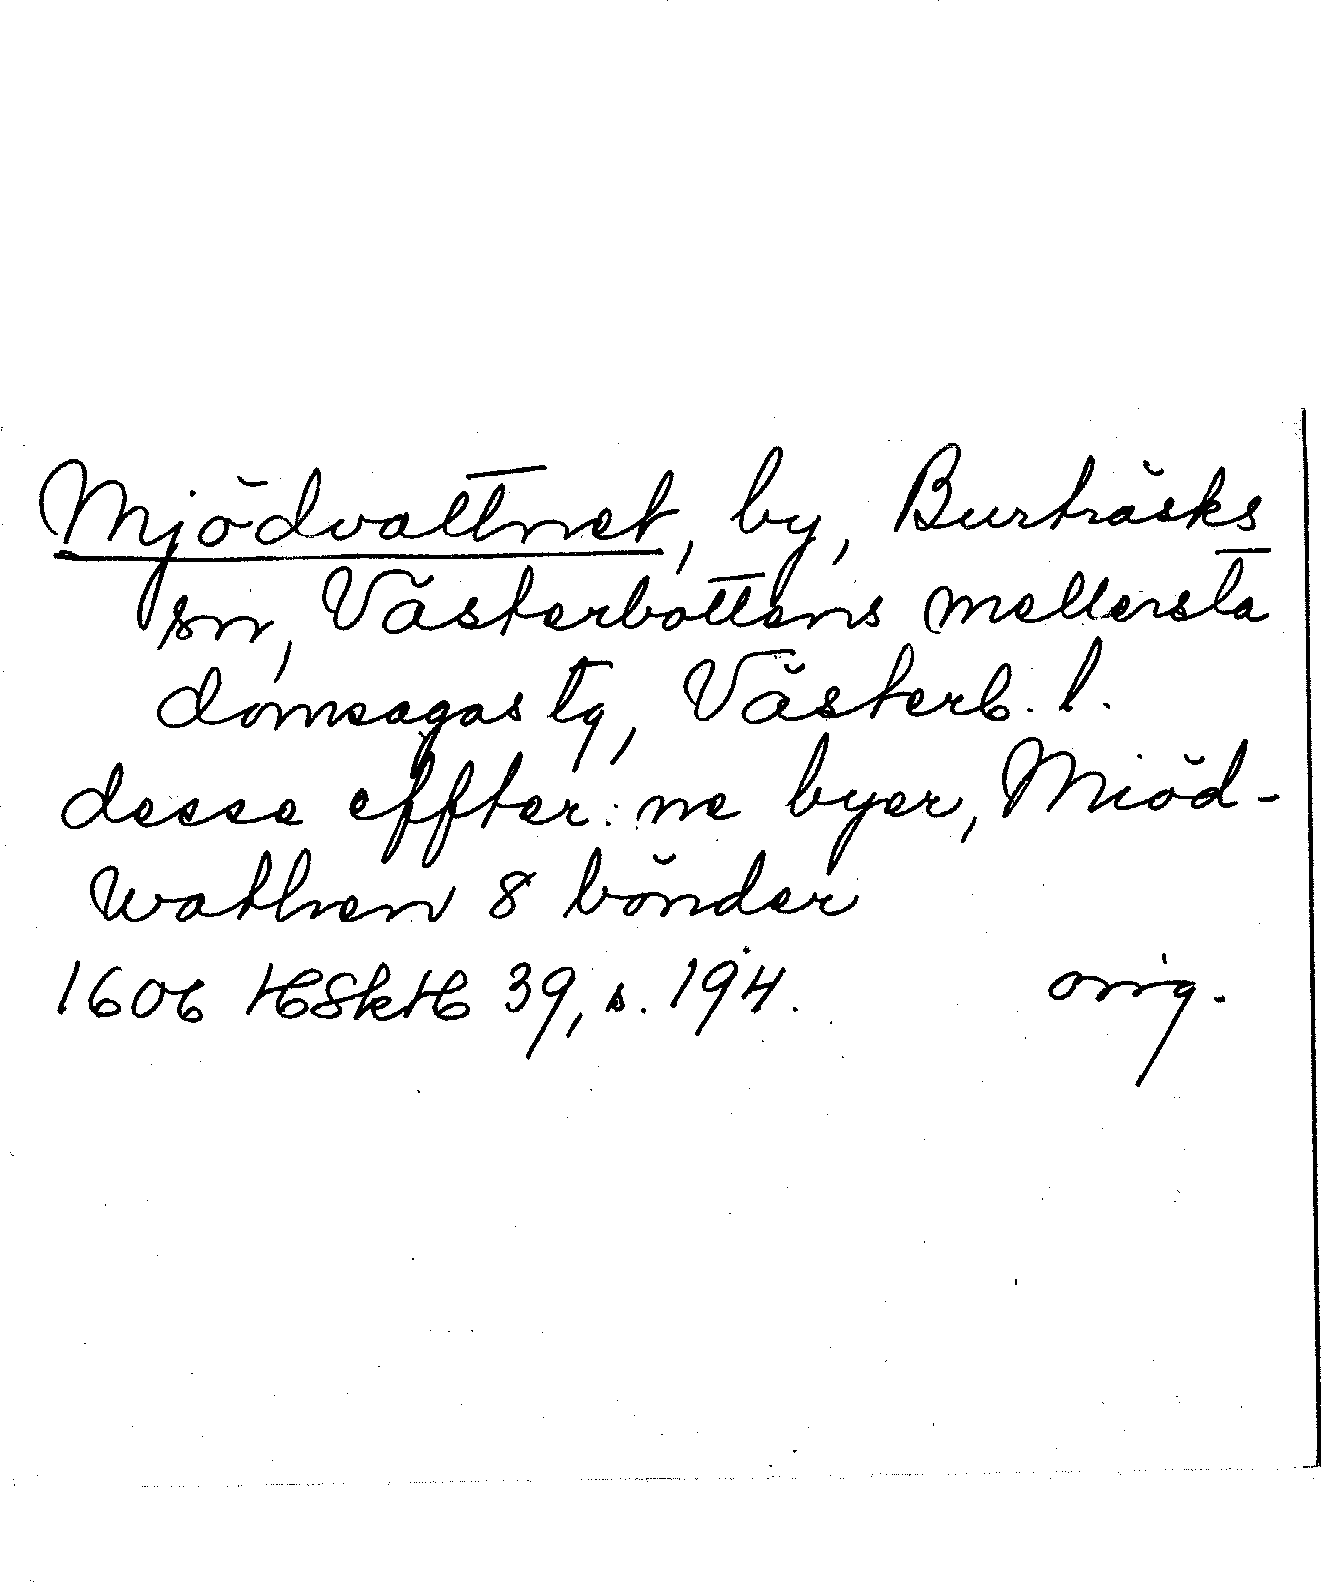 Mjödvattnet, by, Burträsks
sn, Västerbottens mellersta
domsagas tg, Västerb. l.
desse effter:ne byer, Miöd-
wathnen 8 bönder
1606 HSkH 39, s. 194. orig.